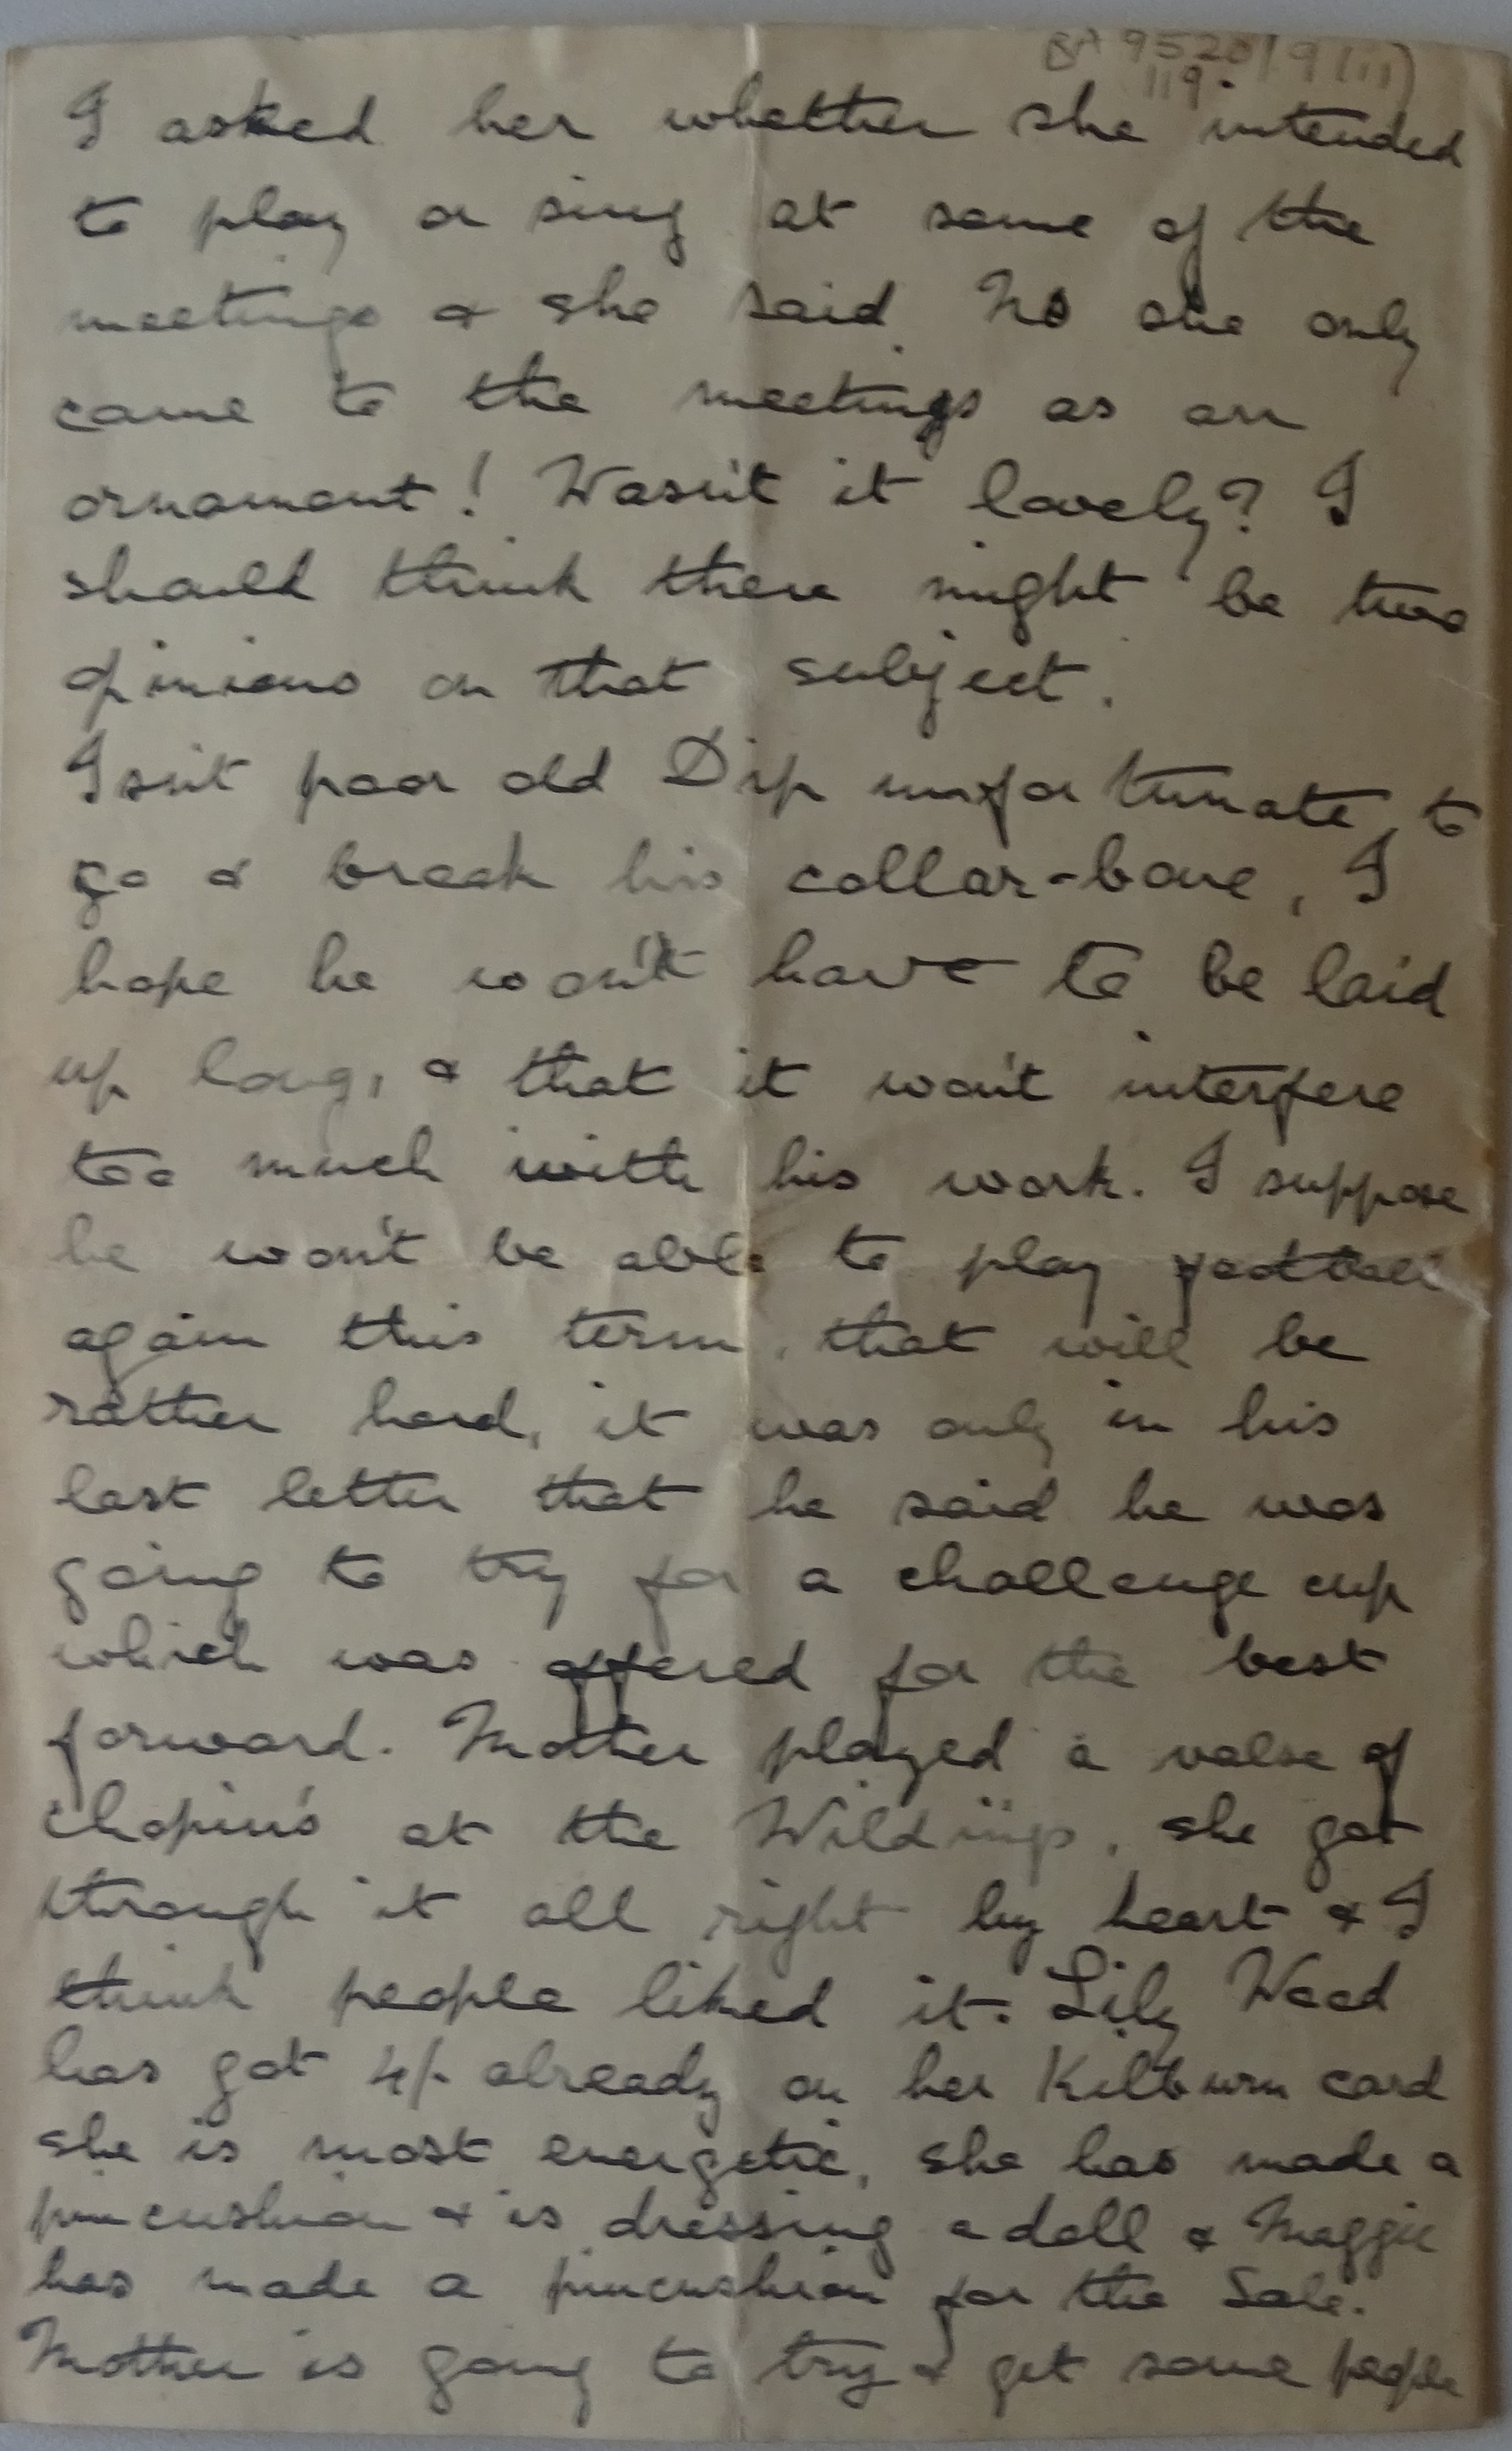 BA 9520/9(ii)
119.
I asked her whether she intended
to play or sing at some of the
meetings & she said No she only
came to the meetings as an
ornament! Wasn't it lovely? I
should think there might be two
opinions on that subject.
Isn't poor old Dip unfortunate, to
go & break his collar-bone, I
hope he won't have to be laid
up long, & that it won't interfere
too much with his work. I suppose
he won't be able to play football
again this term, that will be
rather hard, it was only in his
last letter that he said he was
going to try for a challenge cup
which was offered for the best
forward. Mother played a valse of
Chopin's at the Wildings, she got
through it all right by heart & I
think people liked it. Lily Wood
has got 4/- already on her Kilburn card
she is most energetic, she has made a
pincushion & is dressing a doll & Maggie
has made a pincushion for the Sale.
Mother is going to try & get some people